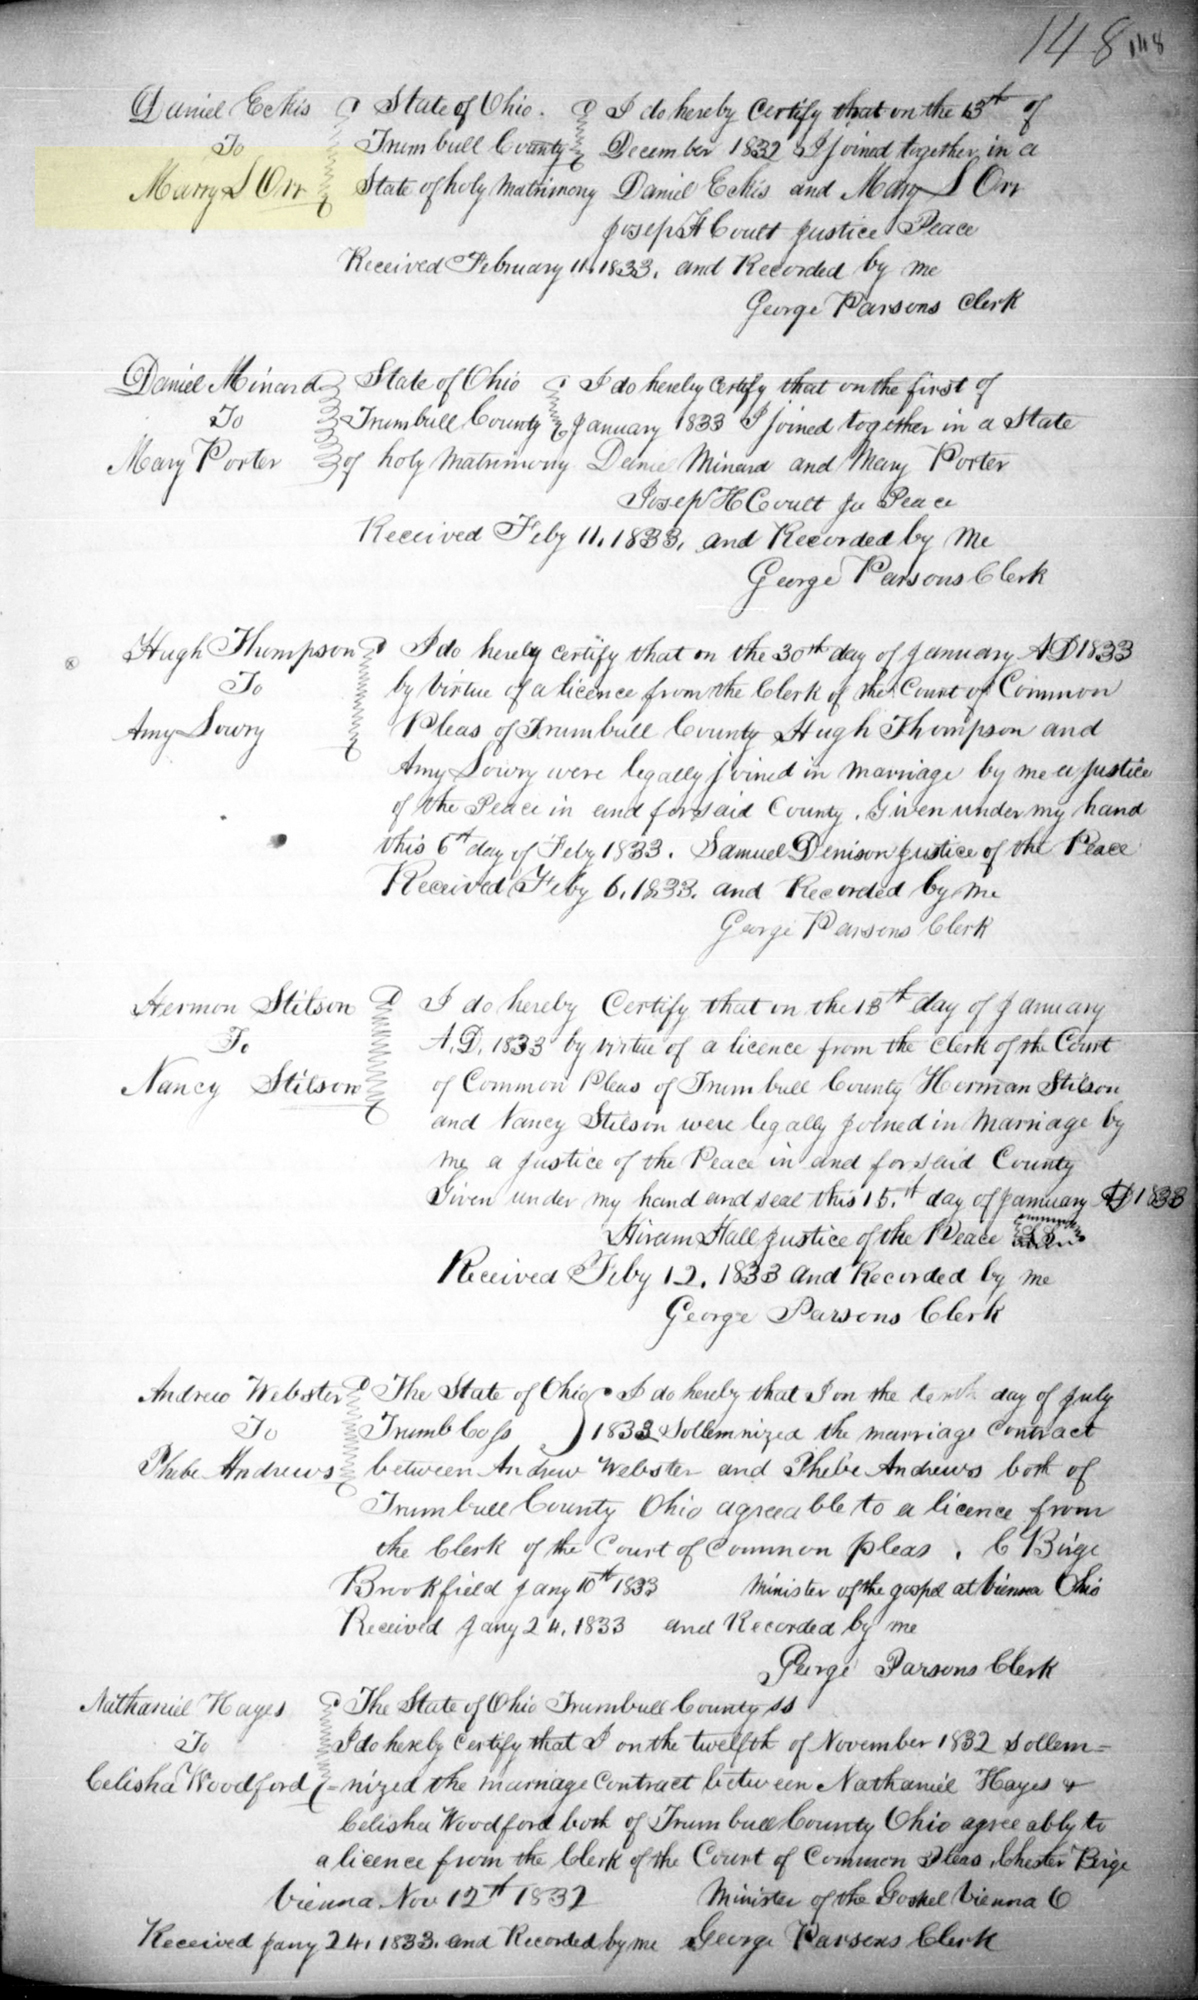 148 148
Daniel Eckis State of Ohio. I do hereby certify that on the 13th of
To Trumbull County December 1832 I joined together in a
Marry S Orr State of holy Matrimony Daniel Eckis and Mary S Orr
Joseph H Coult Justice Peace
Received February 11. 1833. and Recorded by me
George Parsons Clerk
Daniel Minard State of Ohio I do hereby certify that on the first of
To Trumbull County January 1833 I joined together in a State
Mary Porter of holy Matrimony Daniel Minard and Mary Porter
Joseph H Coult Ju Peace
Received Feby 11. 1833. and Recorded by Me
George Parsons Clerk
Hugh Thompson I do hereby certify that on the 30th day of January AD 1833
To by virtue of a licence from the Clerk of the Court of Common
Amy Lowry Pleas of Trumbull County Hugh Thompson and
Amy Lowry were legally joined in marriage by me a Justice
of the Peace in and for said County. Given under my hand
this 6th day of Feby 1833. Samuel Denison Justice of the Peace
Received Feby 6. 1833. and Recorded by Me
George Parsons Clerk
Hermon Stilson I do hereby Certify that on the 13th day of January
To A.D. 1833 by virtue of a licence from the Clerk of the Court
Nancy Stilson of Common Pleas of Trumbull County Herman Stilson
and Nancy Stilson were legally joined in Marriage by
me a Justice of the Peace in and for said County
Given under my hand and seal this 15.th day of January AD 1833
Hiram Hall Justice of the Peace
Received Feby 12. 1833 and Recorded by me
George Parsons Clerk
Andrew Webster The State of Ohio I do hereby that I on the tenth day of July
To Trumb Co ss 1833 Sollemnized the marriage contract
Phebe Andrews between Andrew Webster and Phebe Andrews both of
Trumbull County Ohio agreeable to a licence from
the Clerk of the Court of Common pleas. C Birge
Brookfield Jany 10th 1833 Minister of the gospel at Vienna Ohio
Received Jany 24. 1833 and Recorded by me
George Parsons Clerk
Nathaniel Hayes The State of Ohio Trumbull County ss
To I do hereby certify that I on the twelfth of November 1832 Sollem=
Celisha Woodford =nized the marriage contract between Nathaniel Hayes &
Celisha Woodford both of Trumbull County Ohio agreeably to
a licence from the Clerk of the Court of Common Pleas. Chester Birge
Vienna Nov 12th 1832 Minister of the Gospel Vienna O
Received Jany 24. 1833. and Recorded by me George Parsons Clerk